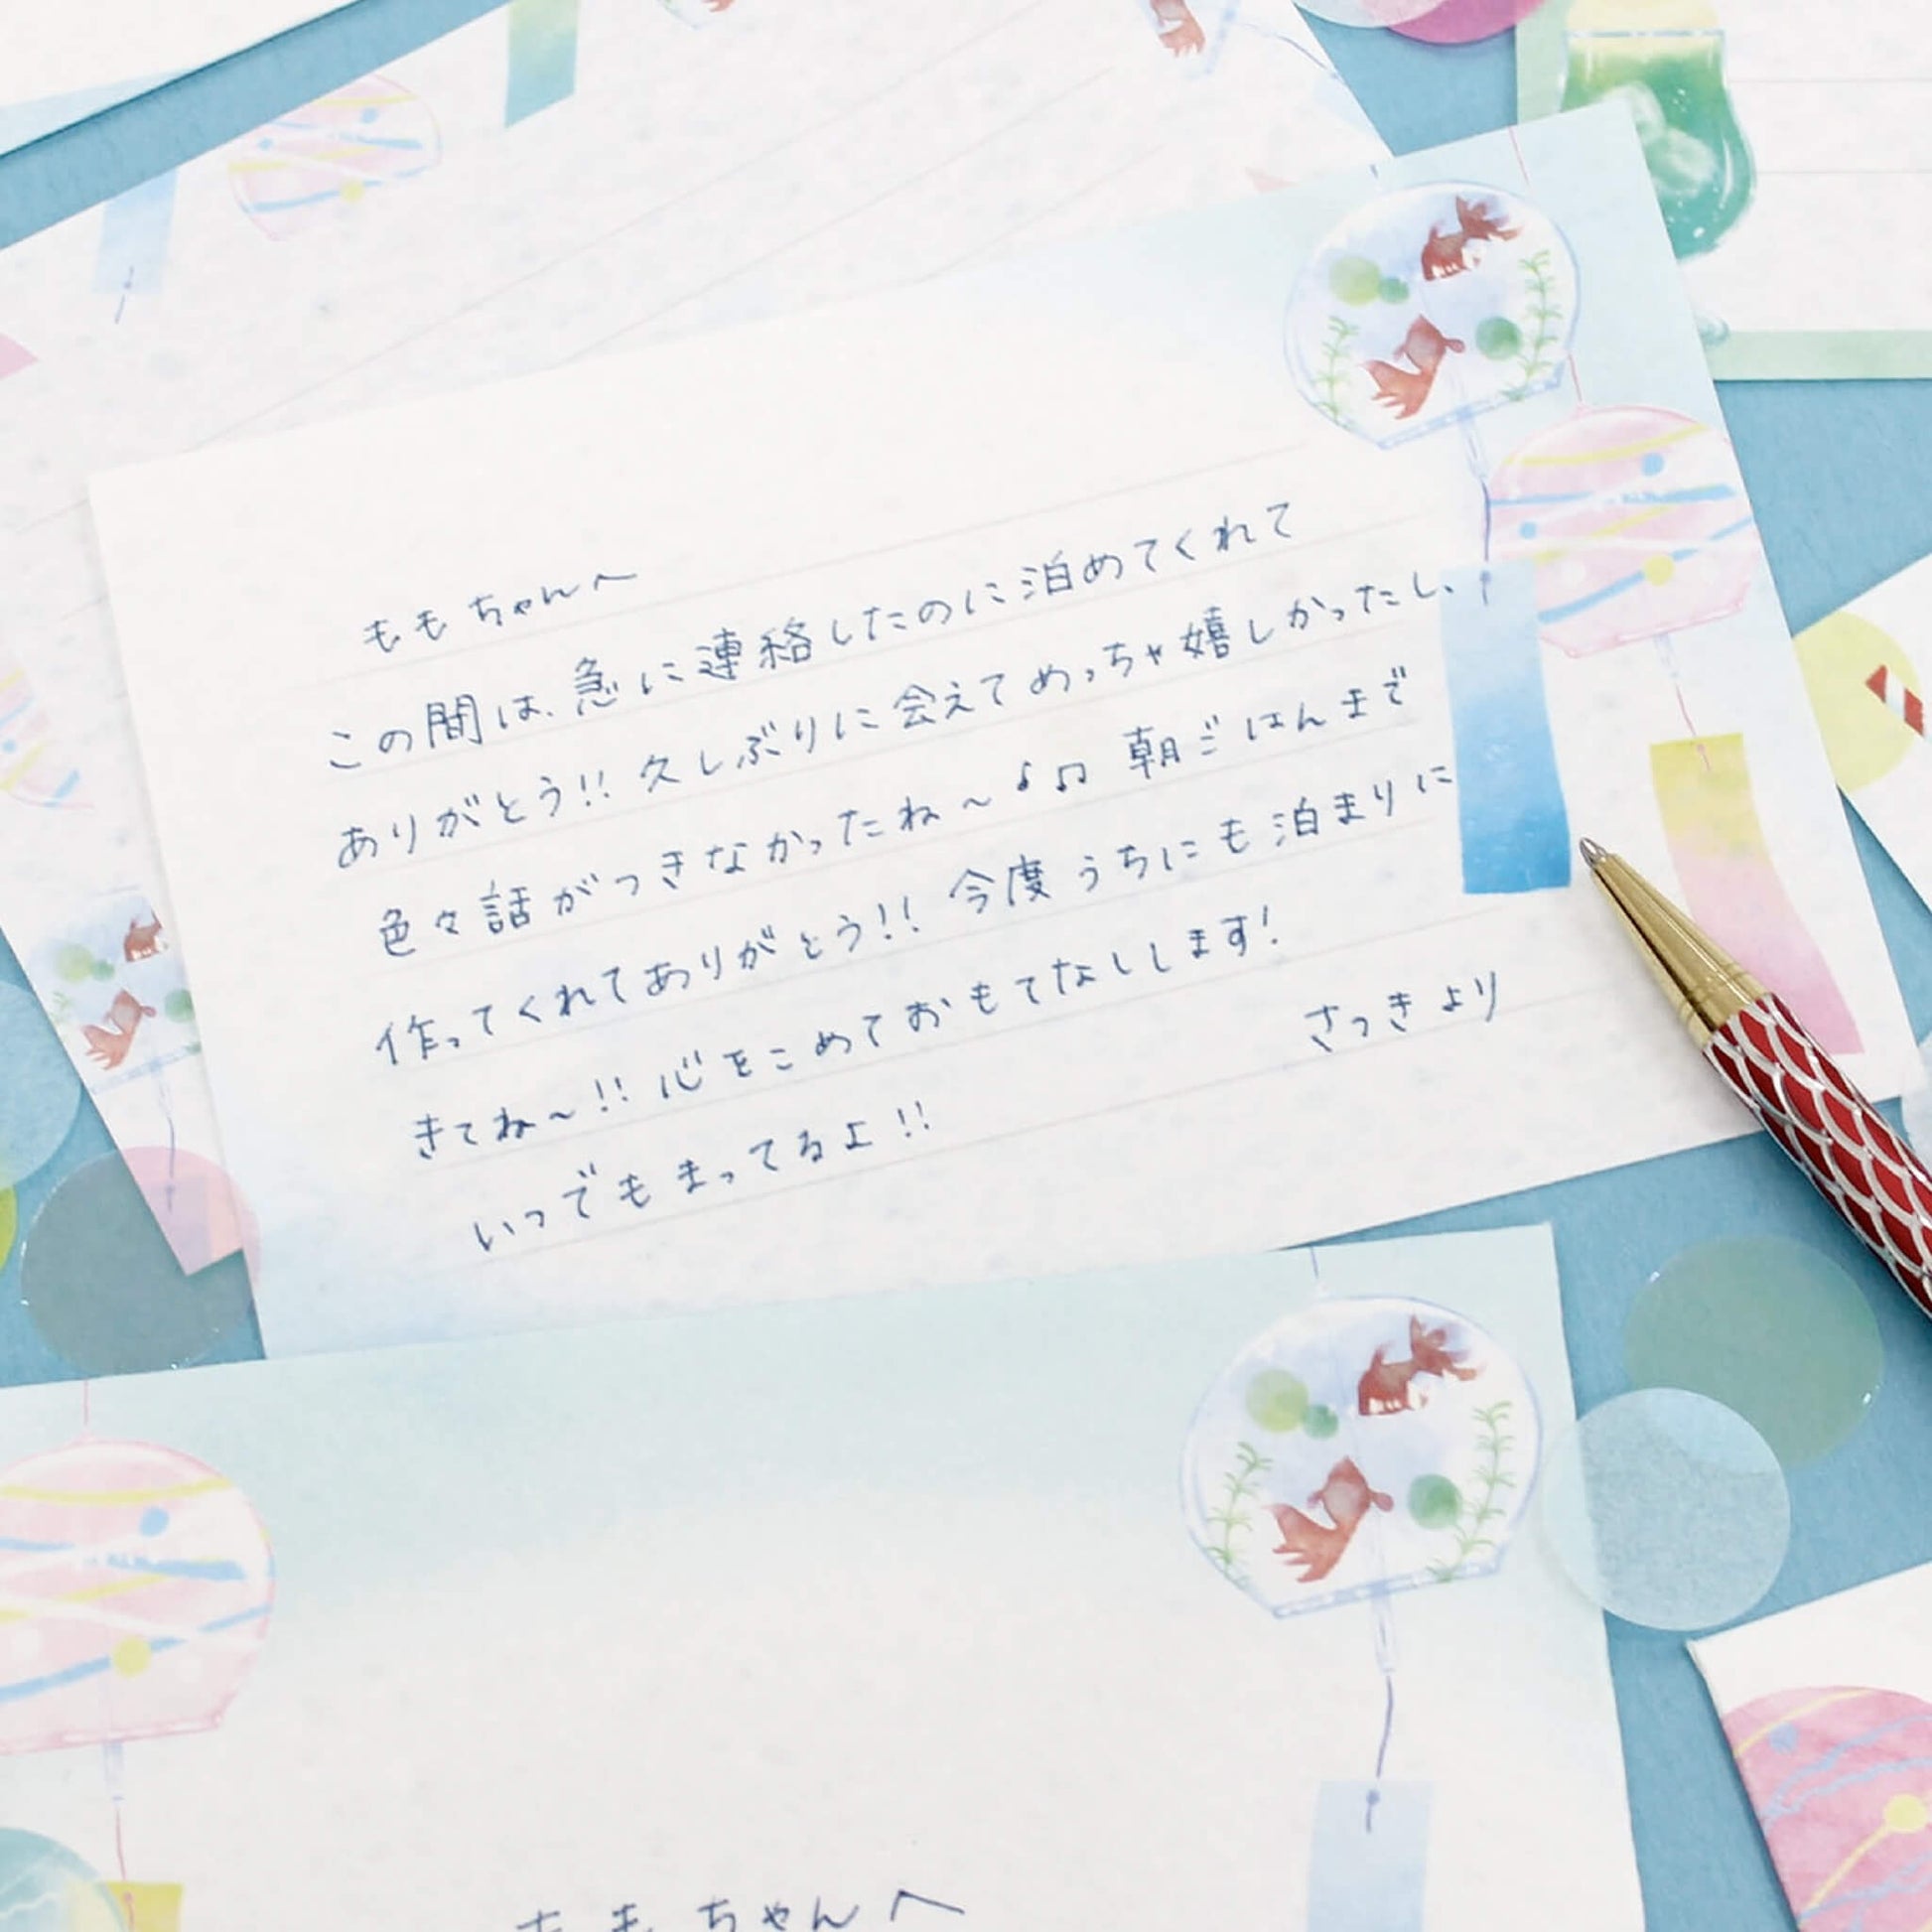 ももちゃんへ
この間は、急に連絡したのに泊めてくれて
ありがとう!! 久しぶりに会えてめっちゃ嬉しかったし、
色々話がつきなかったね〜♪♫ 朝ごはんまで
作ってくれてありがとう!! 今度うちにも泊まりに
きてね〜!! 心をこめておもてなしします!
いつでもまってるよ!!
さつきより
ももちゃんへ